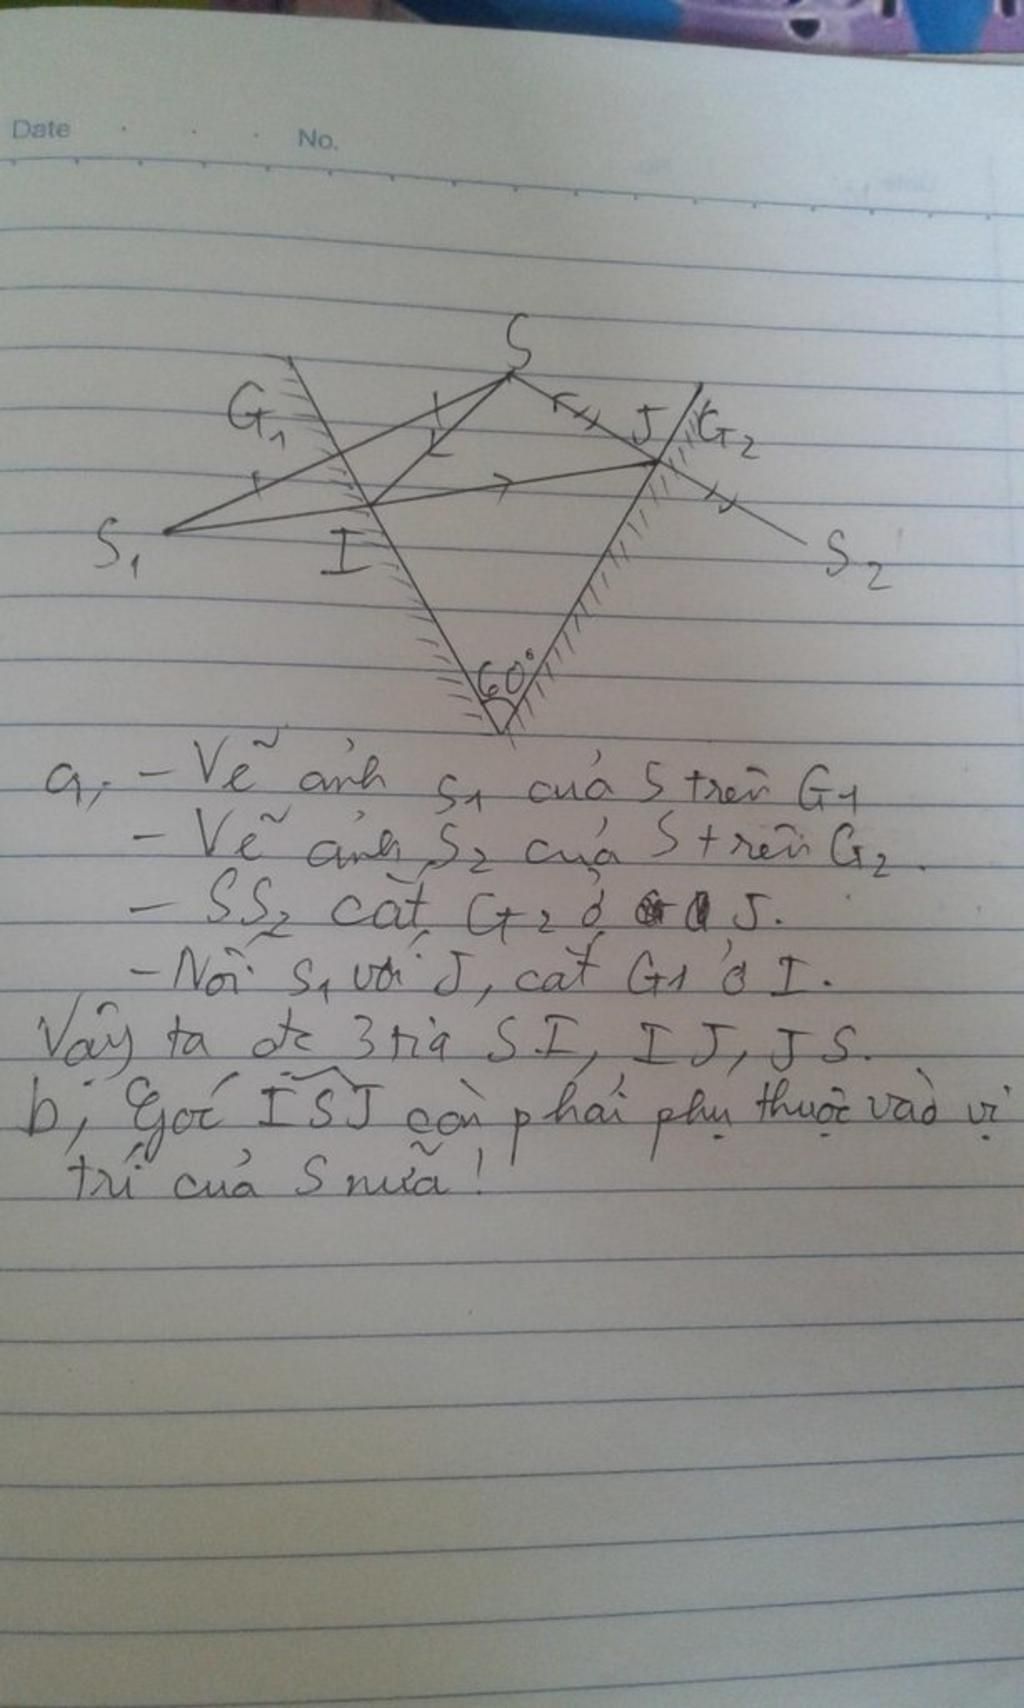 Date No.
S
G1 J G2
S1 I S2
60°
a, - Vẽ ảnh S1 của S trên G1
- Vẽ ảnh S2 của S trên G2.
- SS2 cắt G2 ở J.
- Nối S1 với J, cắt G1 ở I.
Vậy ta đc 3 tia SI, IJ, JS.
b, Góc ISJ còn phải phụ thuộc vào vị
trí của S nữa!